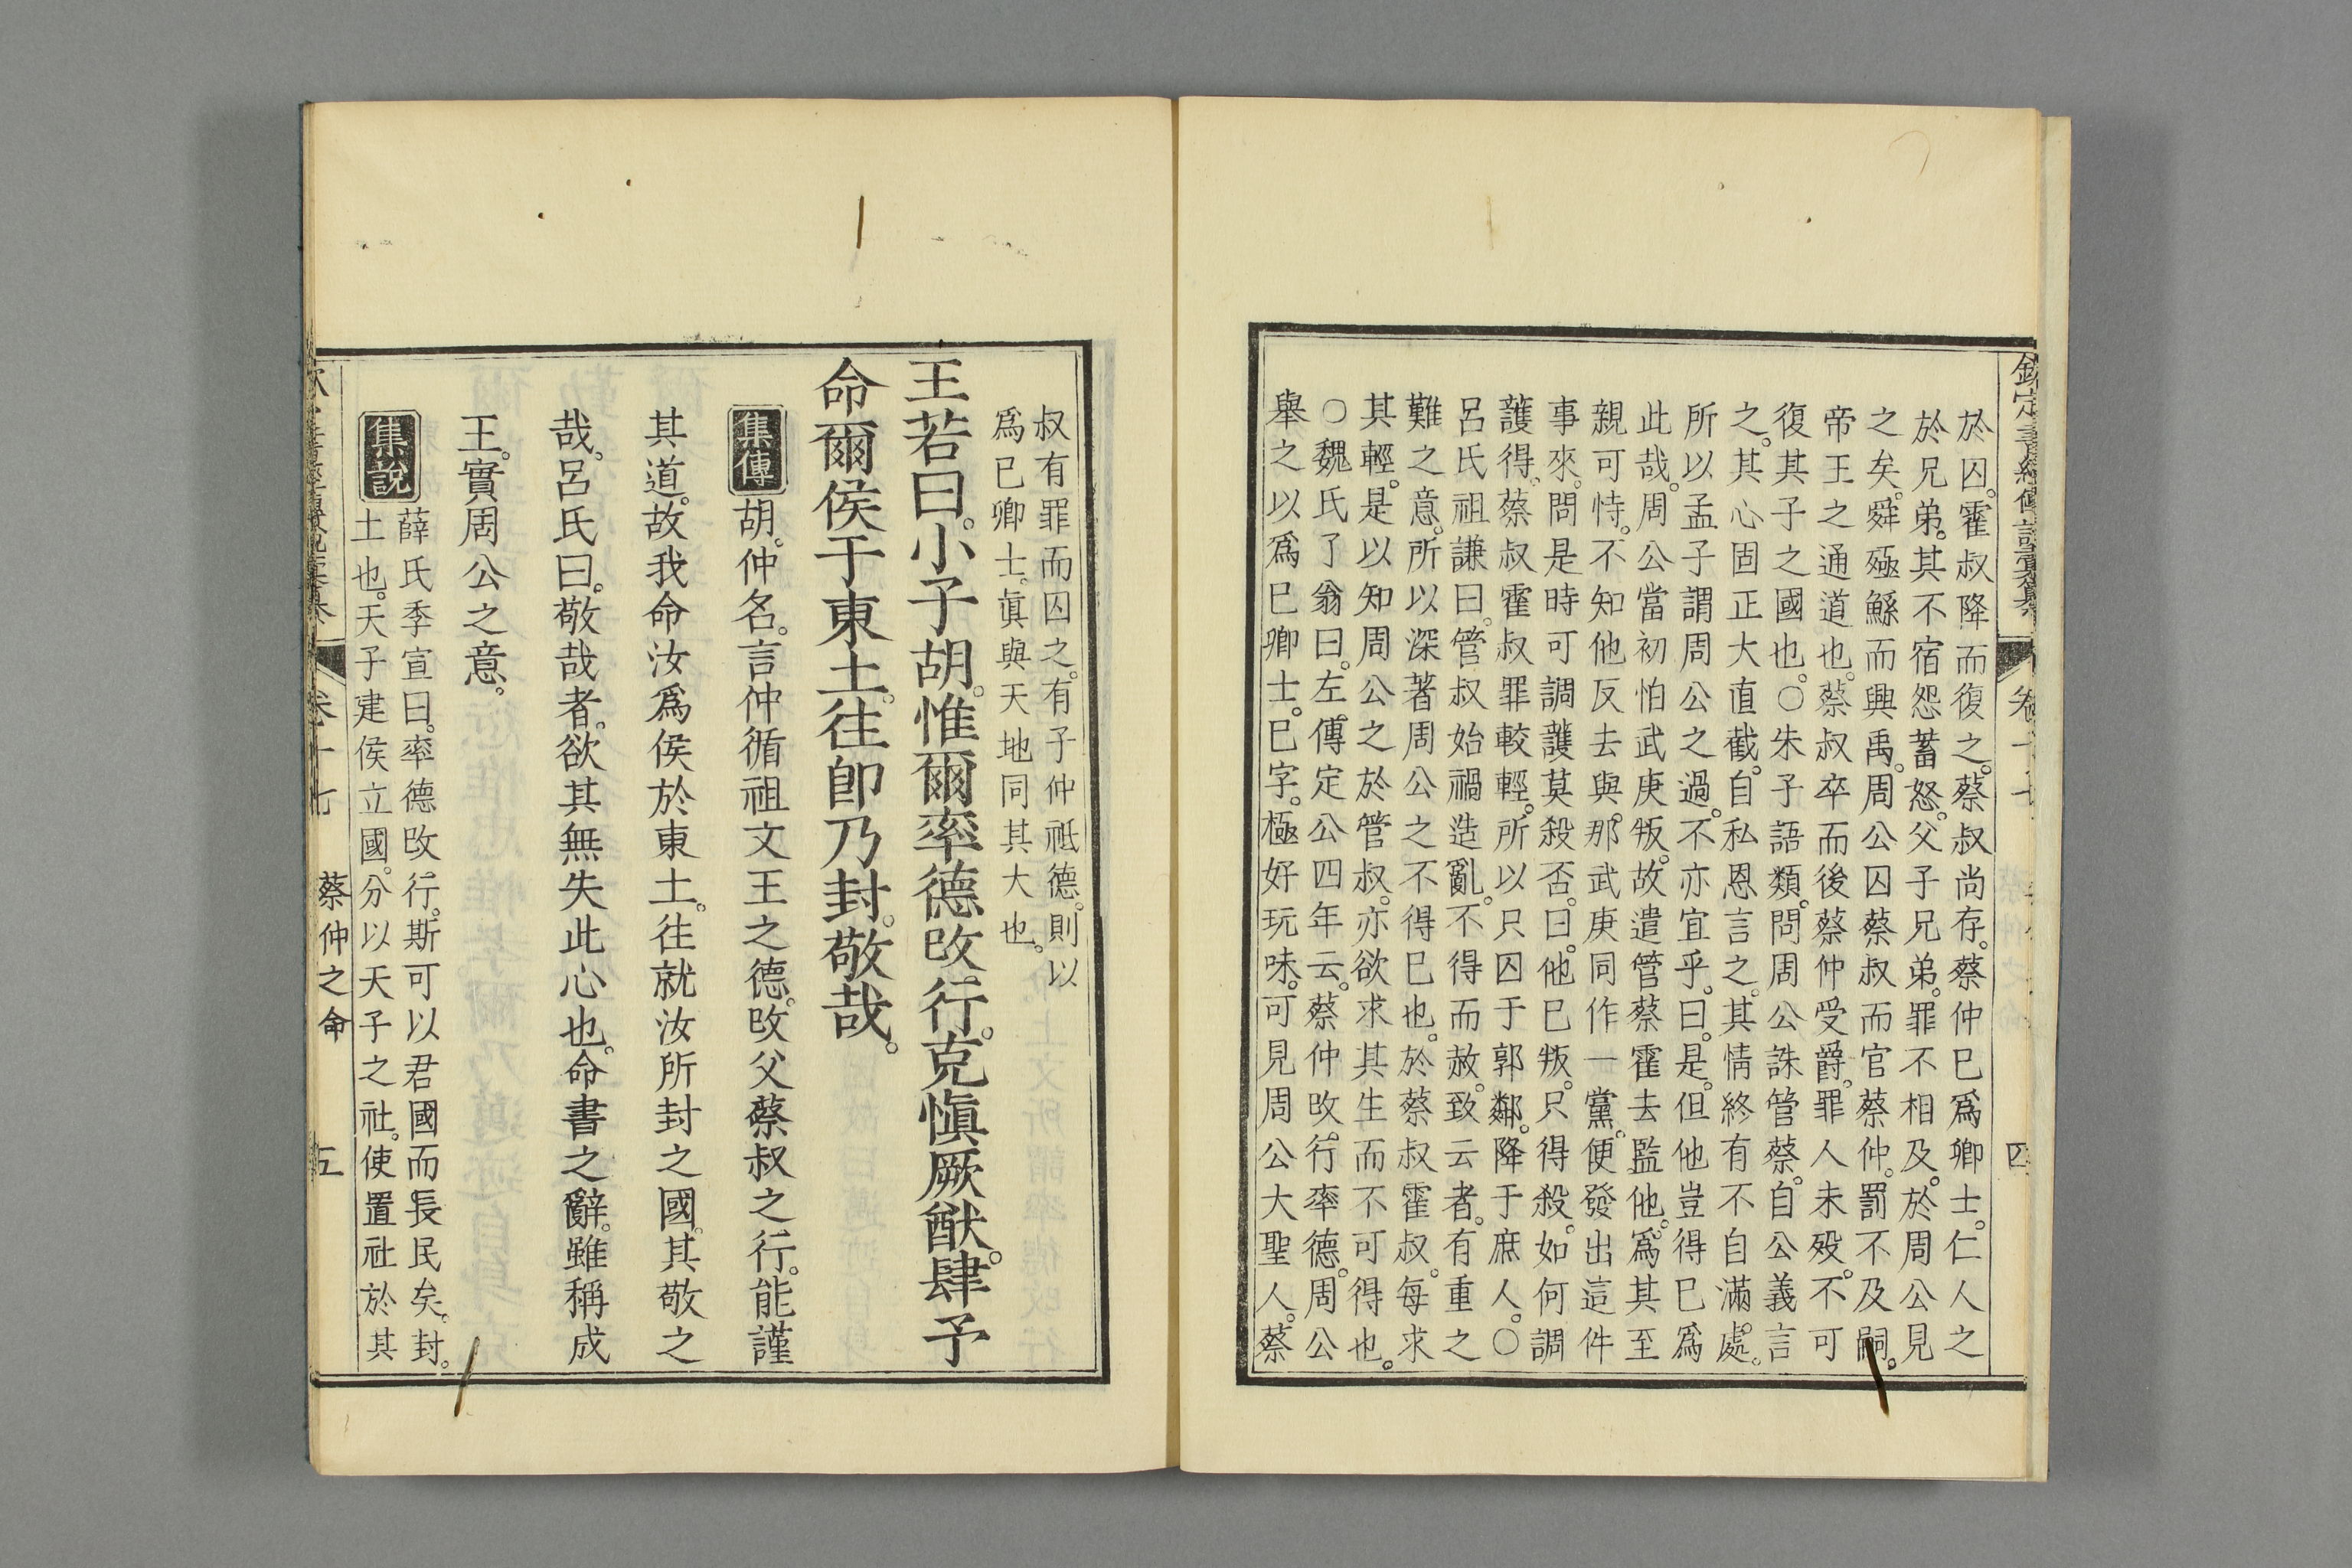 於囚。霍叔降而復之。蔡叔尚存。蔡仲已爲卿士。仁人之
於兄弟。其不宿怨蓄怒。父子兄弟。罪不相及。於周公見
之矣。舜殛鯀而興禹。周公囚蔡叔而官蔡仲。罰不及嗣。
帝王之通道也。蔡叔卒而後蔡仲受爵。罪人未歿。不可
復其子之國也。○朱子語類。問周公誅管蔡。自公義言
之。其心固正大直截。自私恩言之。其情終有不自滿處。
所以孟子謂周公之過。不亦宜乎。曰。是。但他豈得已爲
此哉。周公當初怕武庚叛。故遣管蔡霍去監他。爲其至
親可恃。不知他反去與那武庚同作一黨。便發出這件
事來。問。是時可調護莫殺否。曰。他已叛。只得殺。如何調
護得。蔡叔霍叔罪較輕。所以只囚于郭鄰。降于庶人。○
呂氏祖謙曰。管叔始禍造亂。不得而赦。致云者。有重之
難之意。所以深著周公之不得已也。於蔡叔霍叔。每求
其輕。是以知周公之於管叔。亦欲求其生而不可得也。
○魏氏了翁曰。左傳定公四年云。蔡仲改行率德。周公
舉之以爲已卿士。已字。極好玩味。可見周公大聖人。蔡
卷十七
四
叔有罪而囚之。有子仲祗德。則以
爲已卿士。眞與天地同其大也。
王若曰。小子胡。惟爾率德改行。克愼厥猷。肆予
命爾侯于東土。往卽乃封。敬哉。
集傳 胡。仲名。言仲循祖文王之德。改父蔡叔之行。能謹
其道。故我命汝爲侯於東土。往就汝所封之國。其敬之
哉。呂氏曰。敬哉者。欲其無失此心也。命書之辭。雖稱成
王。實周公之意。
集說 薛氏季宣曰。率德改行。斯可以君國而長民矣。封。
土也。天子建侯立國。分以天子之社。使置社於其
卷十七 蔡仲之命 五